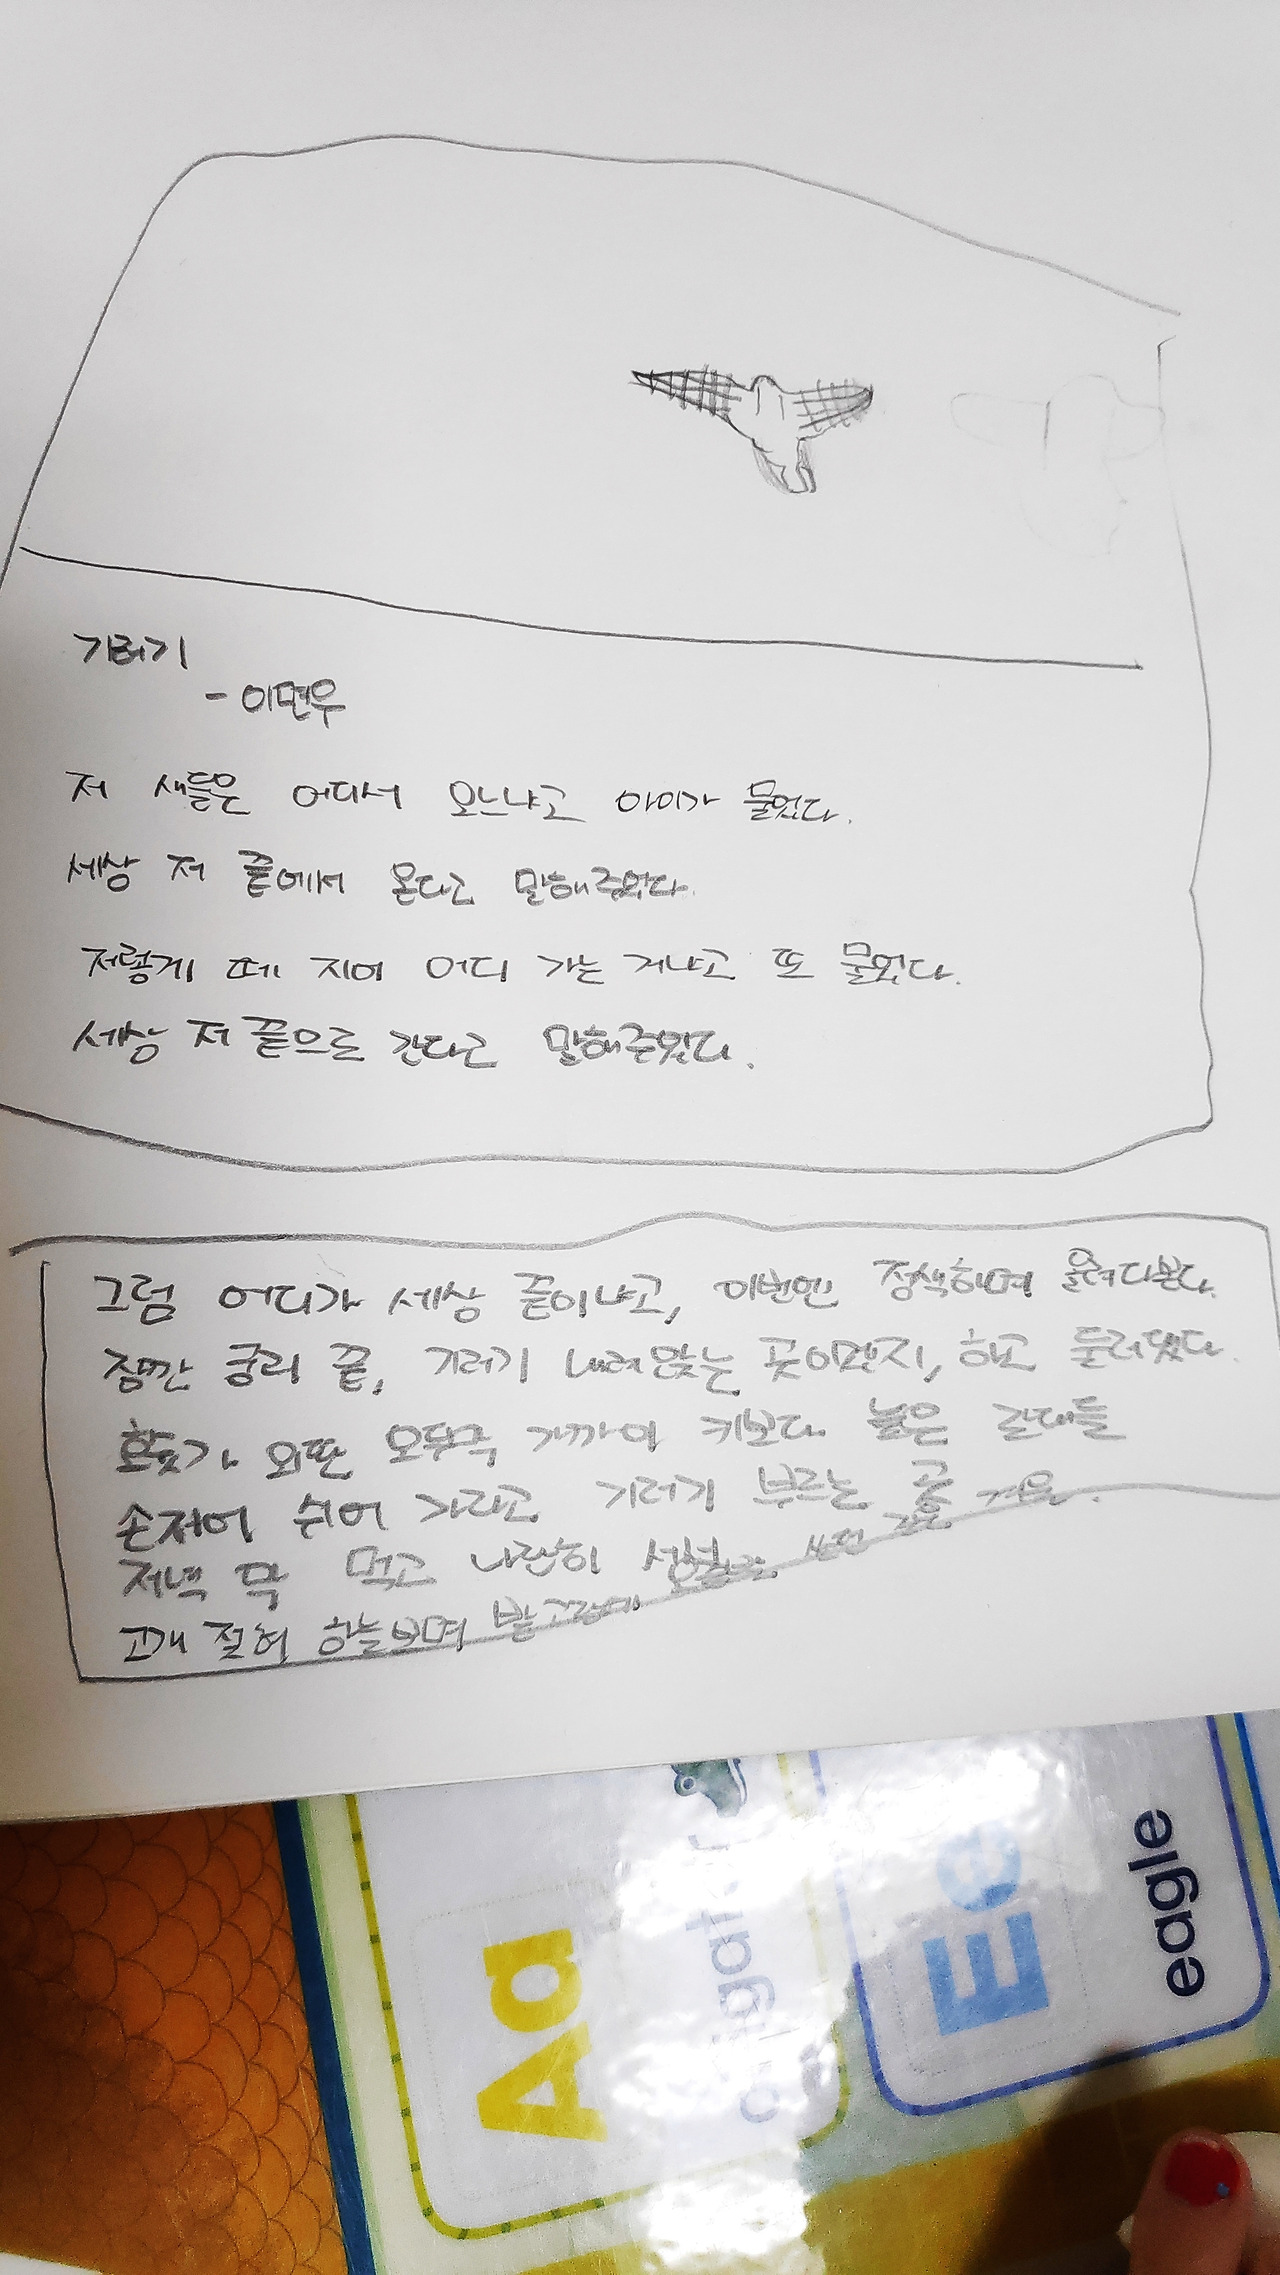 기러기
- 이면우
저 새들은 어디서 오느냐고 아이가 물었다.
세상 저 끝에서 온다고 말해주었다.
저렇게 떼 지어 어디 가는 거냐고 또 물었다.
세상 저 끝으로 간다고 말해주었다.
그럼 어디가 세상 끝이냐고, 이번엔 정색하며 올려다본다.
잠깐 궁리 끝, 기러기 내려앉는 곳이겠지, 하고 둘러댔다.
호숫가 외딴 오두막 가까이 키보다 높은 갈대들
손저어 쉬어 가라고 기러기 부르는 곳 겨울.
저녁 막 먹고 나란히
고개 젖혀 하늘보며 밭고랑에
Aa
Ee
eagle